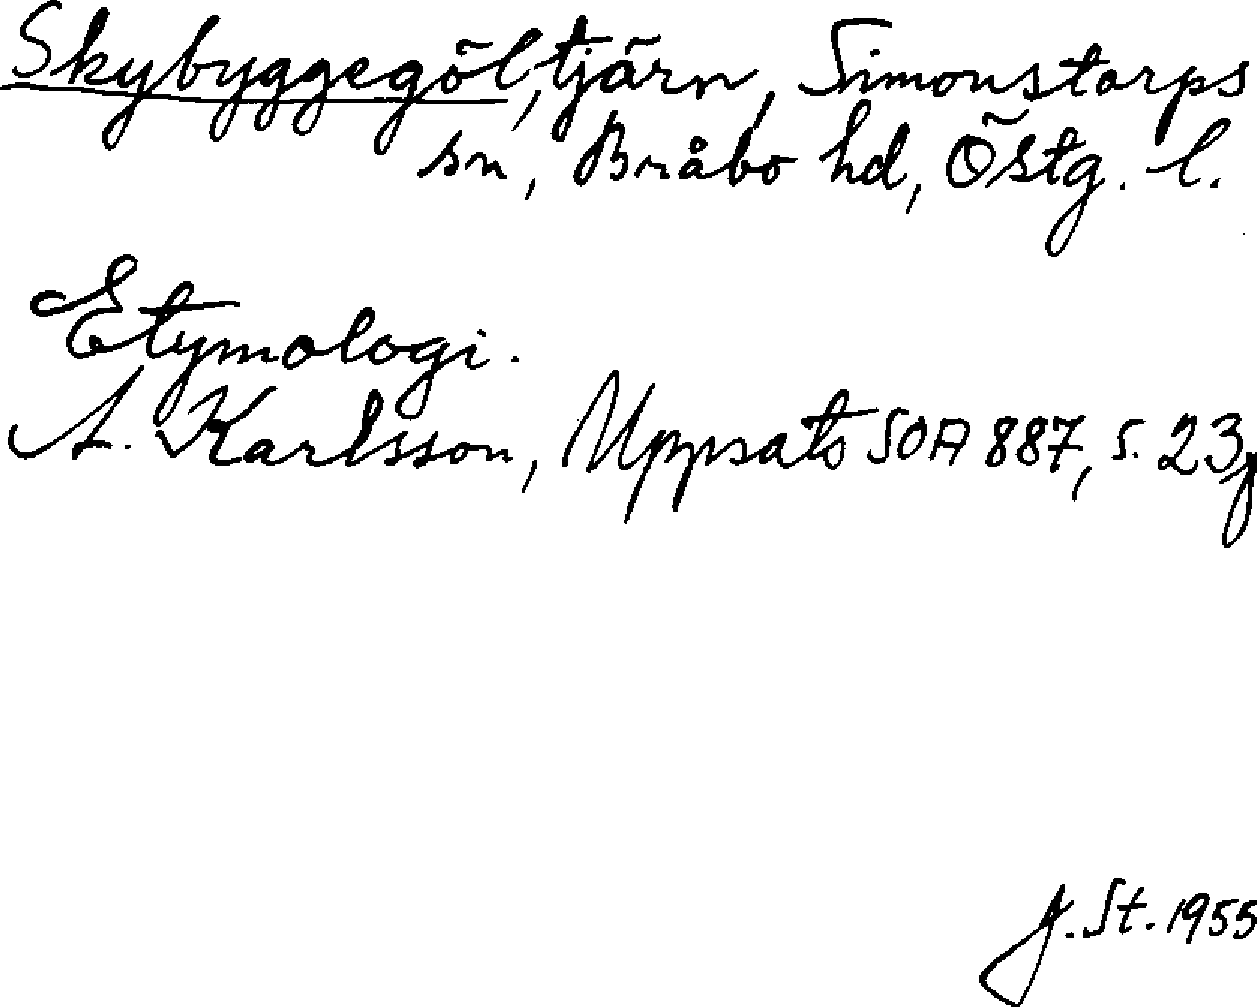 Skybyggegöl, tjärn, Simonstorps
sn, Bråbo hd, Östg. l.
Etymologi.
A. Karlsson, Uppsats SOA 887, s. 23f
J. St. 1955